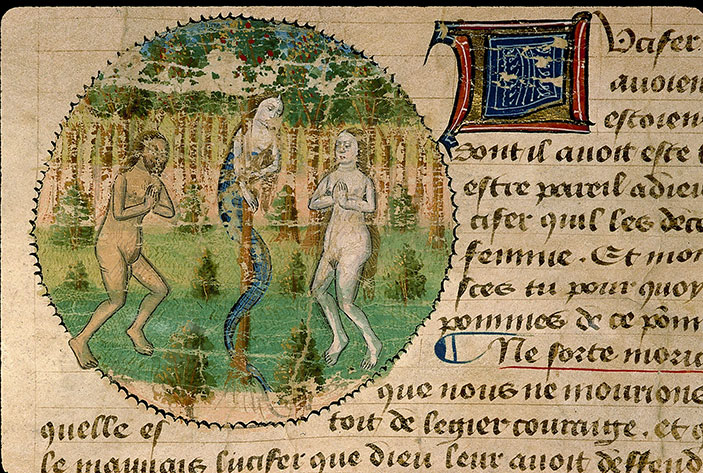 Lucifer
avoien
estoien
dont il avoit este t
estre pareil a dieu
cifer quil les dece
femme . Et mon
stes tu pour quoy
pommes de ce pom
Ne forte moria
que nous ne mourions
quelle es toit de legier courage . et q
le mauvais lucifer que dieu leur avoit deffend